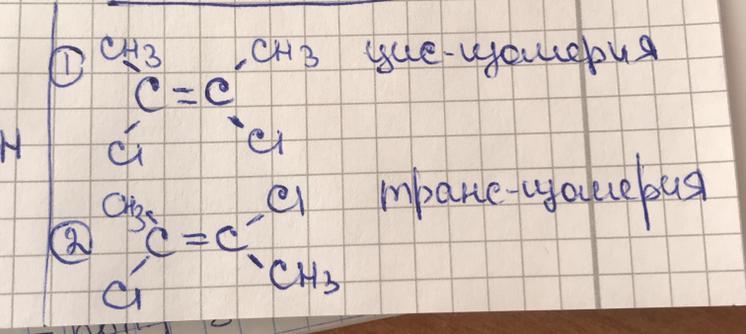 ① CH3 CH3 цис-изомерия
C=C
Cl Cl
н
CH3 Cl транс-изомерия
② C=C
Cl CH3